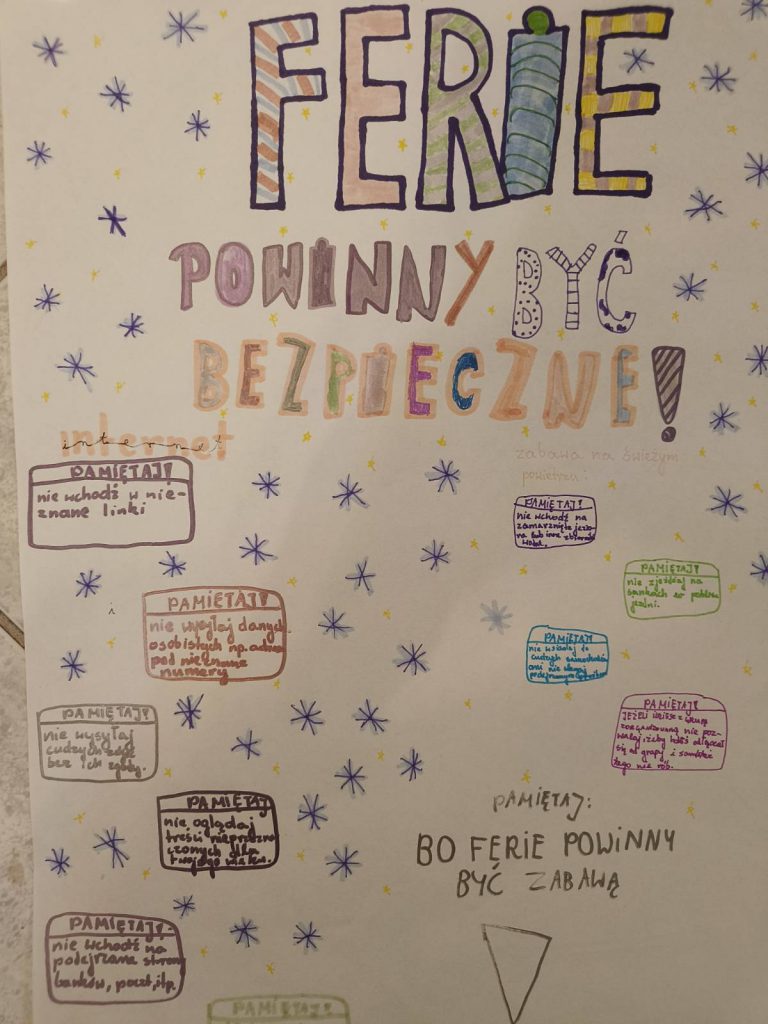 FERIE
POWINNY BYĆ
BEZPIECZNE!
internet
PAMIĘTAJ!
nie wchodź w nie-
znane linki
PAMIĘTAJ!
nie wysyłaj danych
osobistych np. adres
pod nieznane
numery
PAMIĘTAJ!
nie wysyłaj
cudzych zdjęć
bez ich zgody.
PAMIĘTAJ
nie oglądaj
treści nieprzezna
czonych dla
twojego wieku.
PAMIĘTAJ!
nie wchodź na
podejrzane stron
banków, poczt, itp.
PAMIĘTAJ!
zabawa na świeżym
powietrzu:
PAMIĘTAJ!
nie wchodź na
zamarznięte jezio-
ra lub inne zbiorniki
wodne.
PAMIĘTAJ!
nie zjeżdżaj na
sankach w pobliżu
jezdni.
PAMIĘTAJ!
nie wsiadaj do
cudzych samochodów
ani nie
PAMIĘTAJ!
JEŻELI idziesz z grupą
zorganizowaną nie poz-
walaj, żeby ktoś odłączał
się od grupy i sam też
tego nie rób.
PAMIĘTAJ:
BO FERIE POWINNY
BYĆ ZABAWĄ